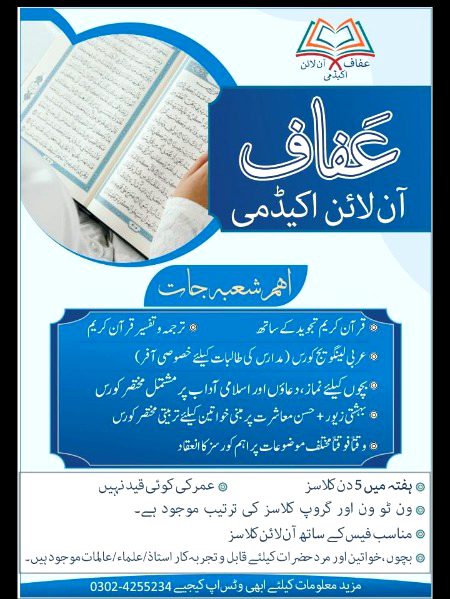 عفاف آن لائن
اکیڈمی
عَفاف
آن لائن اکیڈمی
اہم شعبہ جات
قرآن کریم تجوید کے ساتھ
ترجمہ و تفسیر قرآن کریم
عربی لینگویج کورس (مدارس کی طالبات کیلئے خصوصی آفر)
بچوں کیلئے نماز، دعاؤں اور اسلامی آداب پر مشتمل مختصر کورس
بہشتی زیور + حسن معاشرت پر مبنی خواتین کیلئے تربیتی مختصر کورس
وقتاً فوقتاً مختلف موضوعات پر اہم کورسز کا انعقاد
ہفتہ میں 5 دن کلاسز
عمر کی کوئی قید نہیں
ون ٹو ون اور گروپ کلاسز کی ترتیب موجود ہے۔
مناسب فیس کے ساتھ آن لائن کلاسز
بچوں، خواتین اور مرد حضرات کیلئے قابل و تجربہ کار استاذ/علماء/عالمات موجود ہیں۔
مزید معلومات کیلئے ابھی وٹس اپ کیجیے 0302-4255234